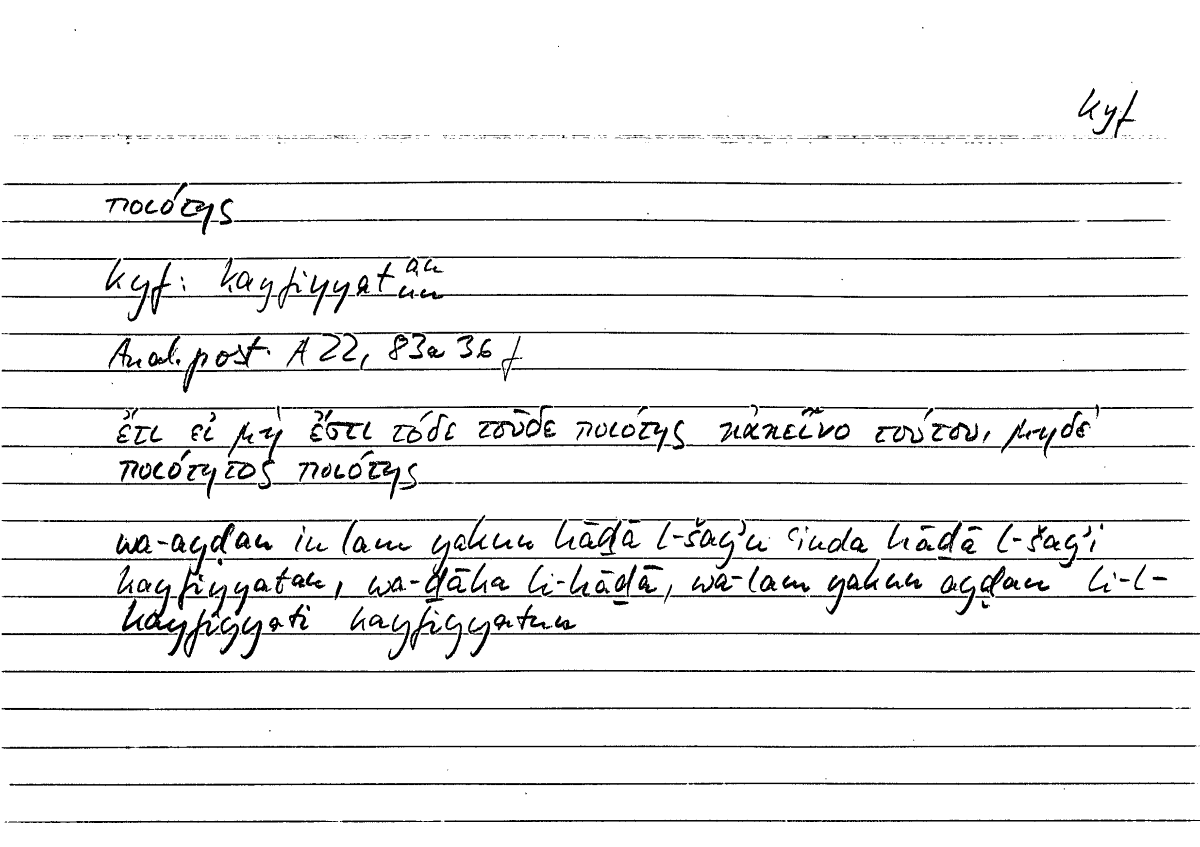 kyf
ποιότης
kyf: kayfiyyat an un
Anal. post. A 22, 83a 36 f
ἔτι εἰ μὴ ἔστι τόδε τοῦδε ποιότης κἀκεῖνο τούτου, μηδὲ
ποιότητος ποιότης
wa-ayḍan in lam yakun hāḏā l-šayʾu ʿinda hāḏā l-šayʾi
kayfiyyatan, wa-ḏāka li-hāḏā, wa-lam yakun ayḍan li-l-
kayfiyyati kayfiyyatun